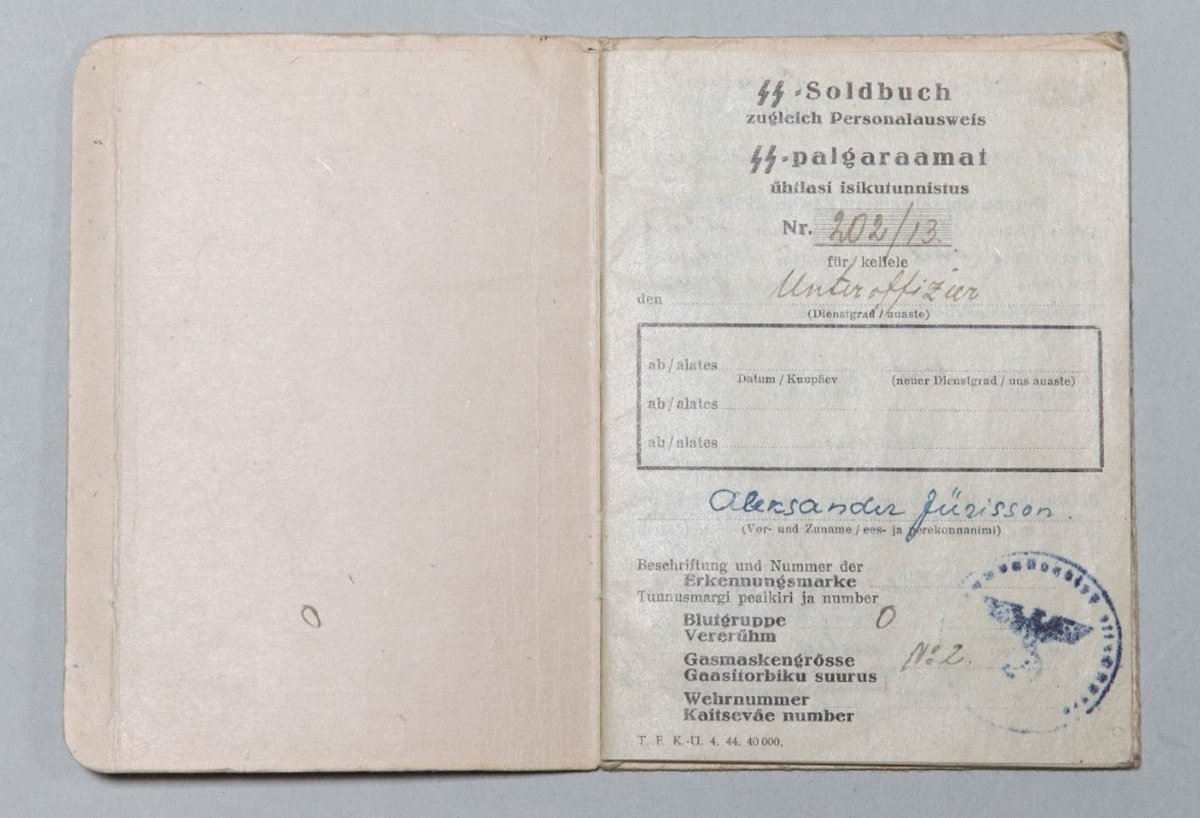 ᛋᛋ-Soldbuch
zugleich Personalausweis
ᛋᛋ-palgaraamat
űhtlasi isikutunnistus
Nr. 202/13.
für/kellele
den Unteroffizier
(Dienstgrad / auaste)
ab / alates
Datum / Kuupäev (neuer Dienstgrad / uus auaste)
ab / alates
ab / alates
Aleksander Jürisson.
(Vor- und Zuname / ees- ja perekonnanimi)
Beschriftung und Nummer der
Erkennungsmarke
Tunnusmargi pealkiri ja number
Blutgruppe O
Vererűhm
Gasmaskengrősse No 2.
Gaasitorbiku suurus
Wehrnummer
Kaitseväe number
T. E. K.-Ü. 4. 44. 40 000.
O